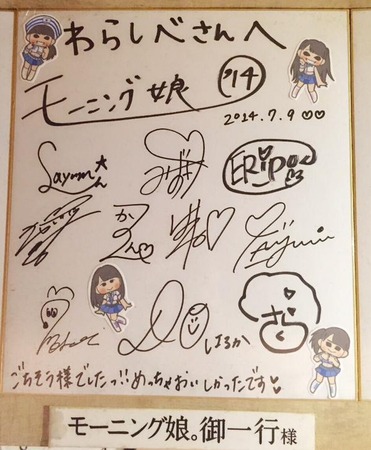 わらしべさんへ
モーニング娘 '14
2014.7.9♡♡
Sayum★ん みずき ERiPO
かのん♡ Ayumi
はるか さく
ごちそう様でしたっ!!めっちゃおいしかったです♥
モーニング娘。御一行様